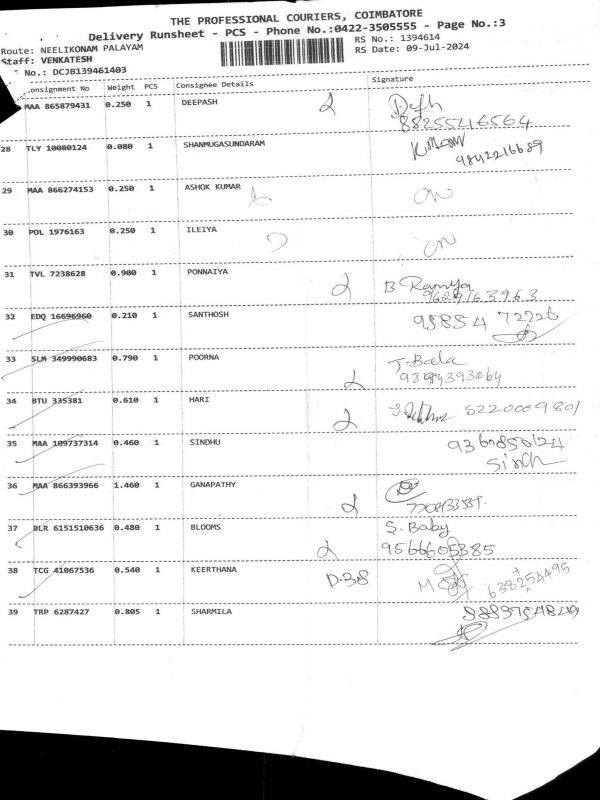 THE PROFESSIONAL COURIERS, COIMBATORE
Delivery Runsheet - PCS - Phone No.:0422-3505555 - Page No.:3
Route: NEELIKONAM PALAYAM RS No.: 1394614
Staff: VENKATESH RS Date: 09-Jul-2024
No.: DCJB139461403
onsignment No Weight PCS Consignee Details Signature
MAA 865879431 0.250 1 DEEPASH 2
8825546564
28 TLY 10080124 0.080 1 SHANMUGASUNDARAM
9842216689
29 MAA 866274153 0.250 1 ASHOK KUMAR
30 POL 1976163 0.250 1 ILEIYA
31 TVL 7238628 0.900 1 PONNAIYA 2 B Ramya
9629163963
32 EDQ 16696960 0.210 1 SANTHOSH 98854 72226
33 SLM 349990683 0.790 1 POORNA 2 T. Bala
34 BTU 335381 0.610 1 HARI 2 8220009801
35 MAA 109737314 0.460 1 SINDHU
Sindh
36 MAA 866393966 1.460 1 GANAPATHY 2
37 BLR 6151510636 0.480 1 BLOOMS 2 S. Baby
9566605385
38 TCG 41067536 0.540 1 KEERTHANA D-38 M 6382544495
39 TRP 6287427 0.805 1 SHARMILA